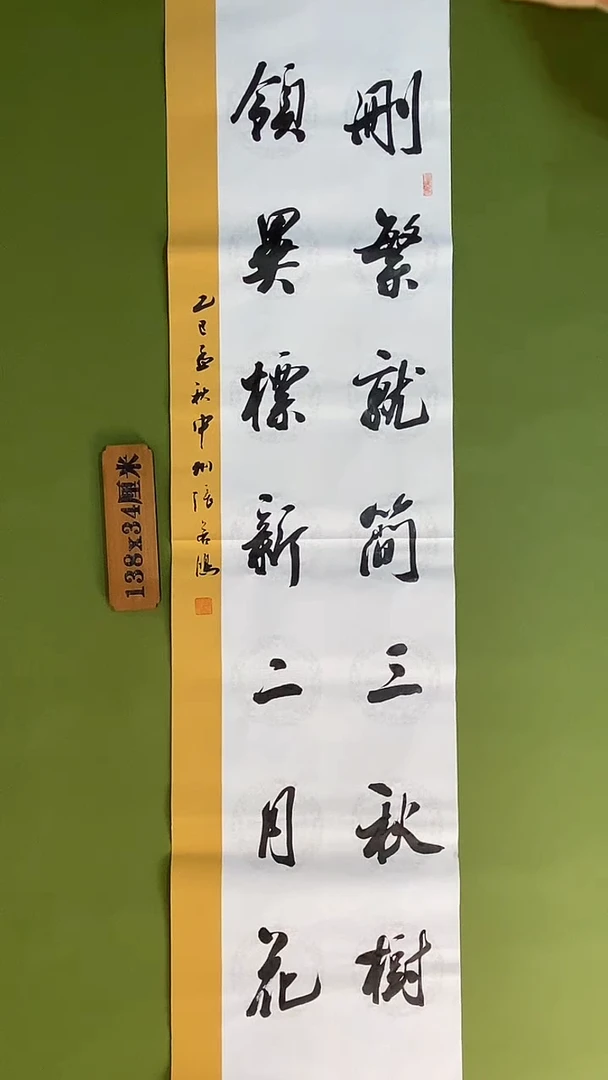 删繁就简三秋树
领异标新二月花
乙巳孟秋申州张
138x34厘米